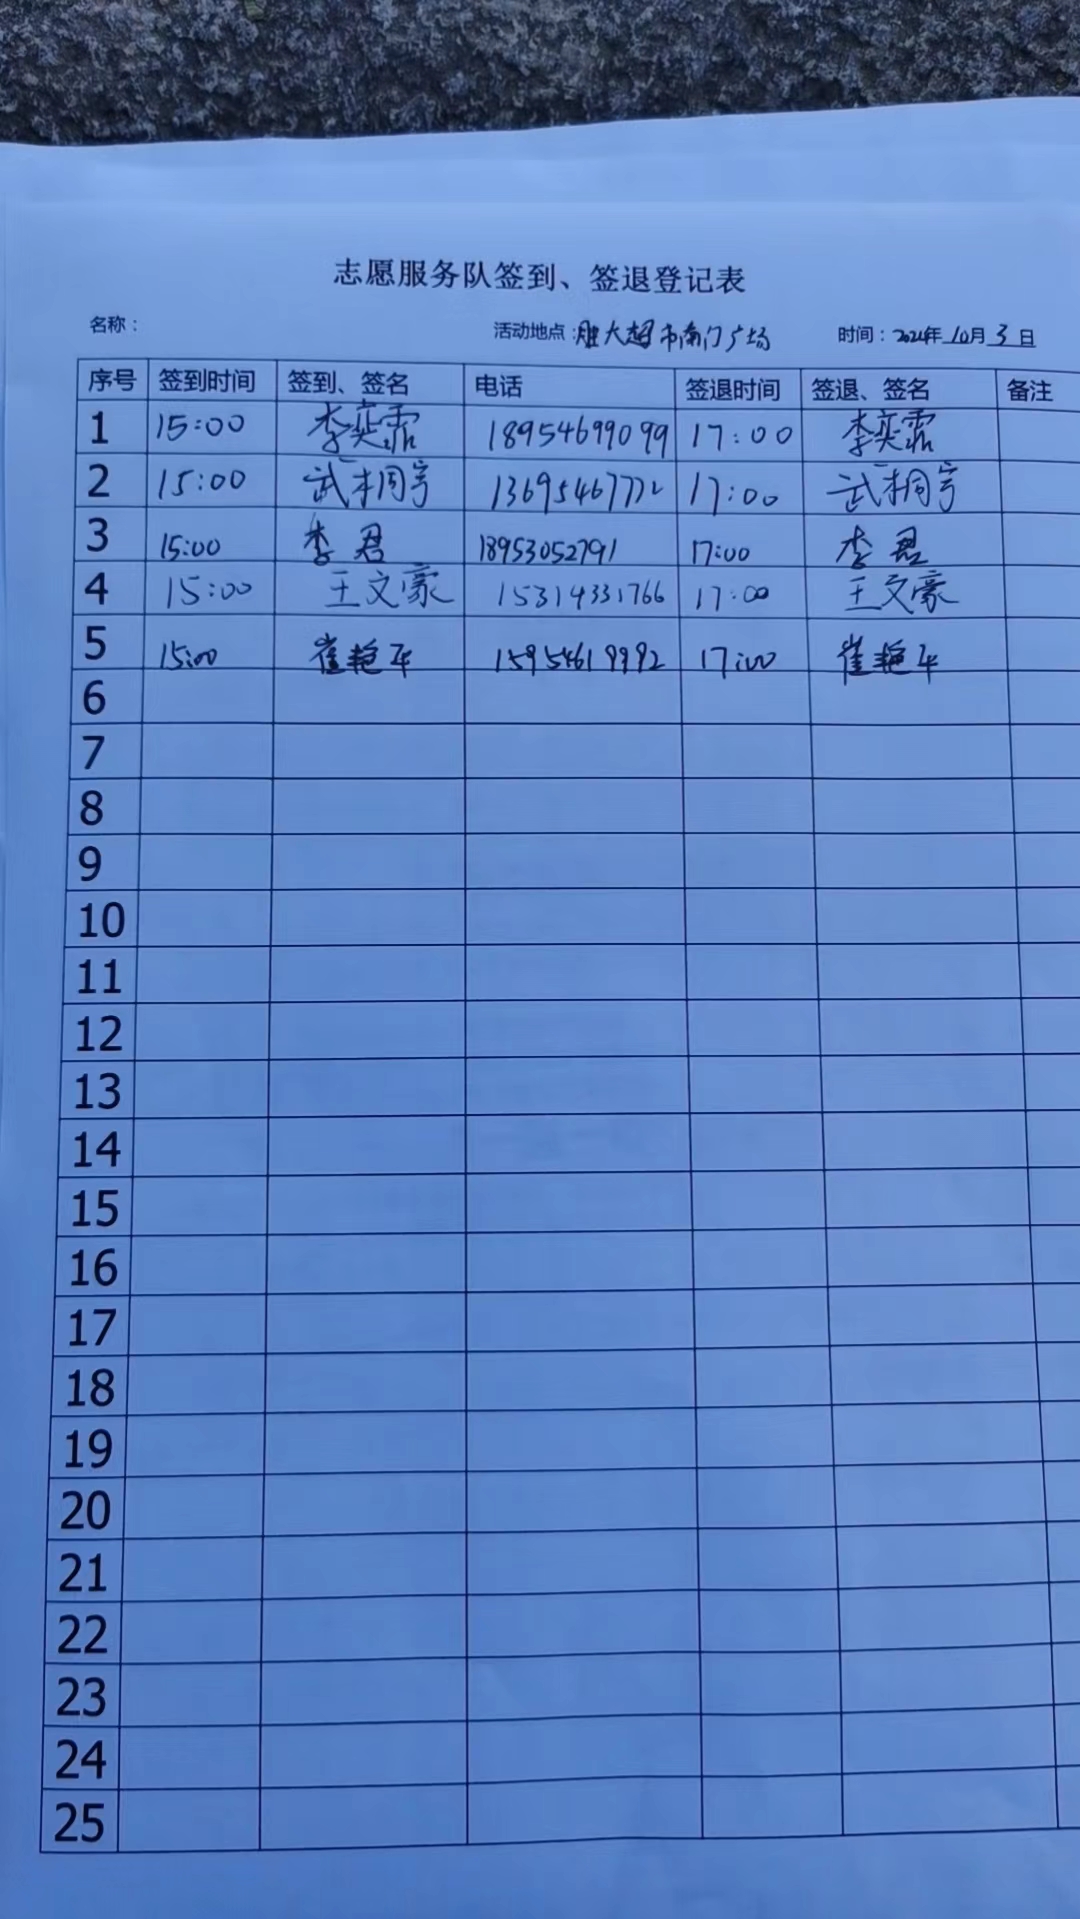 志愿服务队签到、签退登记表
名称： 活动地点：胜大超市南门广场 时间：2021年10月3日
序号 签到时间 签到、签名 电话 签退时间 签退、签名 备注
1 15:00 李奕霏 18954699099 17:00 李奕霏
2 15:00 武桐宇 13695467772 17:00 武桐宇
3 15:00 李君 18953052791 17:00 李君
4 15:00 王文豪 15314331766 17:00 王文豪
5 15:00 崔艳平 15954619992 17:00 崔艳平
6
7
8
9
10
11
12
13
14
15
16
17
18
19
20
21
22
23
24
25